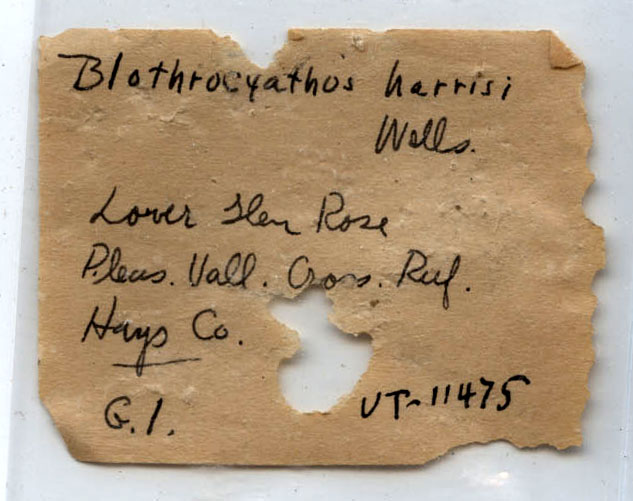 Blothrocyathus harrisi
Wells.
Lower Glen Rose
Pleas. Vall. Cross. Ruf.
Hays Co.
G.1.
UT-11475